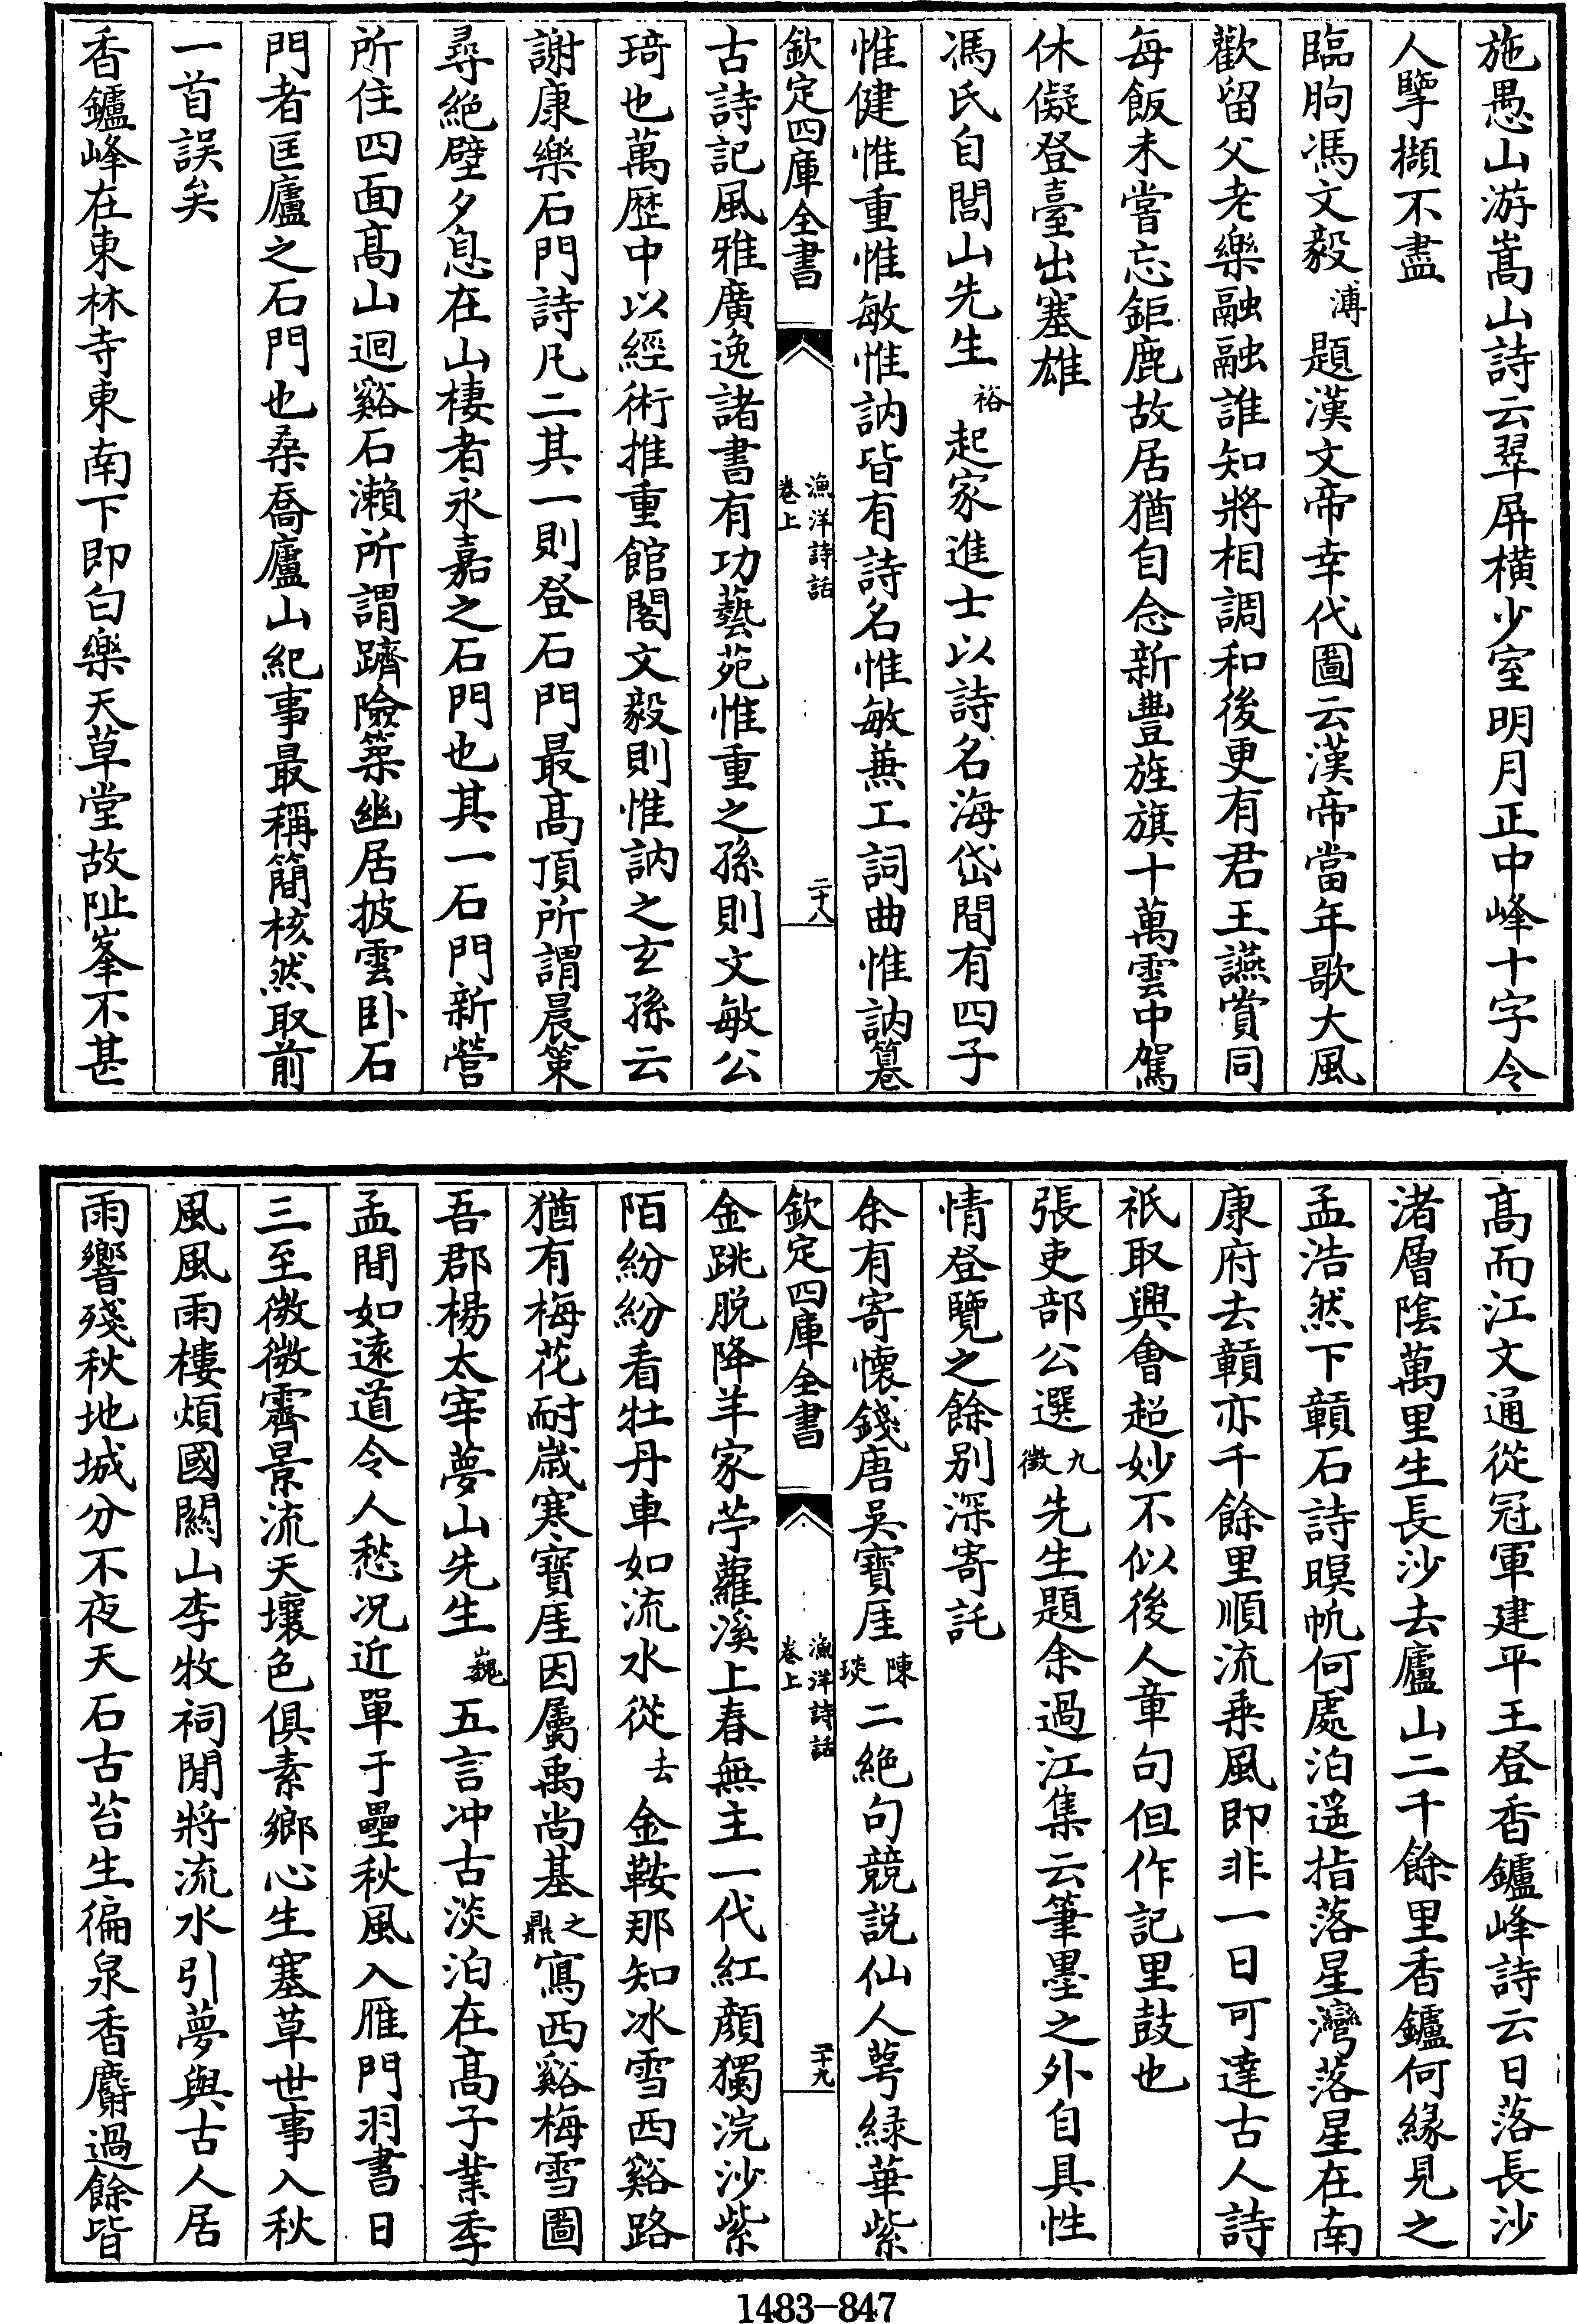 施愚山游嵩山詩云翠屏橫少室明月正中峰十字令
人擥擷不盡
臨朐馮文毅溥題漢文帝幸代圖云漢帝當年歌大風
歡留父老樂融融誰知將相調和後更有君王讌賞同
每飯未嘗忘鉅鹿故居猶自念新豐旌旗十萬雲中駕
休儗登臺出塞雄
馮氏自閭山先生裕起家進士以詩名海岱間有四子
惟健惟重惟敏惟訥皆有詩名惟敏兼工詞曲惟訥纂
欽定四庫全書
漁洋詩話
卷上
二十八
古詩記風雅廣逸諸書有功藝苑惟重之孫則文敏公
琦也萬歷中以經術推重館閣文毅則惟訥之玄孫云
謝康樂石門詩凡二其一則登石門最髙頂所謂晨策
尋絶壁夕息在山棲者永嘉之石門也其一石門新營
所住四面髙山迴谿石瀨所謂躋險築幽居披雲卧石
門者匡廬之石門也桑喬廬山紀事最稱簡核然取前
一首誤矣
香鑪峰在東林寺東南下即白樂天草堂故阯峯不甚
髙而江文通從冠軍建平王登香鑪峰詩云日落長沙
渚層陰萬里生長沙去廬山二千餘里香鑪何緣見之
孟浩然下贑石詩暝帆何處泊遥指落星灣落星在南
康府去贑亦千餘里順流乗風即非一日可達古人詩
祇取興會超妙不似後人章句但作記里鼓也
張吏部公選九徵先生題余過江集云筆墨之外自具性
情登覽之餘别深寄託
余有寄懷錢唐吳寶厓陳琰二絶句競説仙人萼緑華紫
欽定四庫全書
漁洋詩話
卷上
二十九
金跳脱降羊家苧蘿溪上春無主一代紅顔獨浣沙紫
陌紛紛看牡丹車如流水從去金鞍那知冰雪西谿路
猶有梅花耐嵗寒寶厓因屬禹尚基之鼎寫西谿梅雪圖
吾郡楊太宰夢山先生巍五言冲古淡泊在髙子業季
孟間如遠道令人愁况近單于壘秋風入雁門羽書日
三至微微霽景流天壤色俱素鄉心生塞草世事入秋
風風雨樓煩國關山李牧祠閒將流水引夢與古人居
雨響殘秋地城分不夜天石古苔生徧泉香麝過餘皆
1483-847